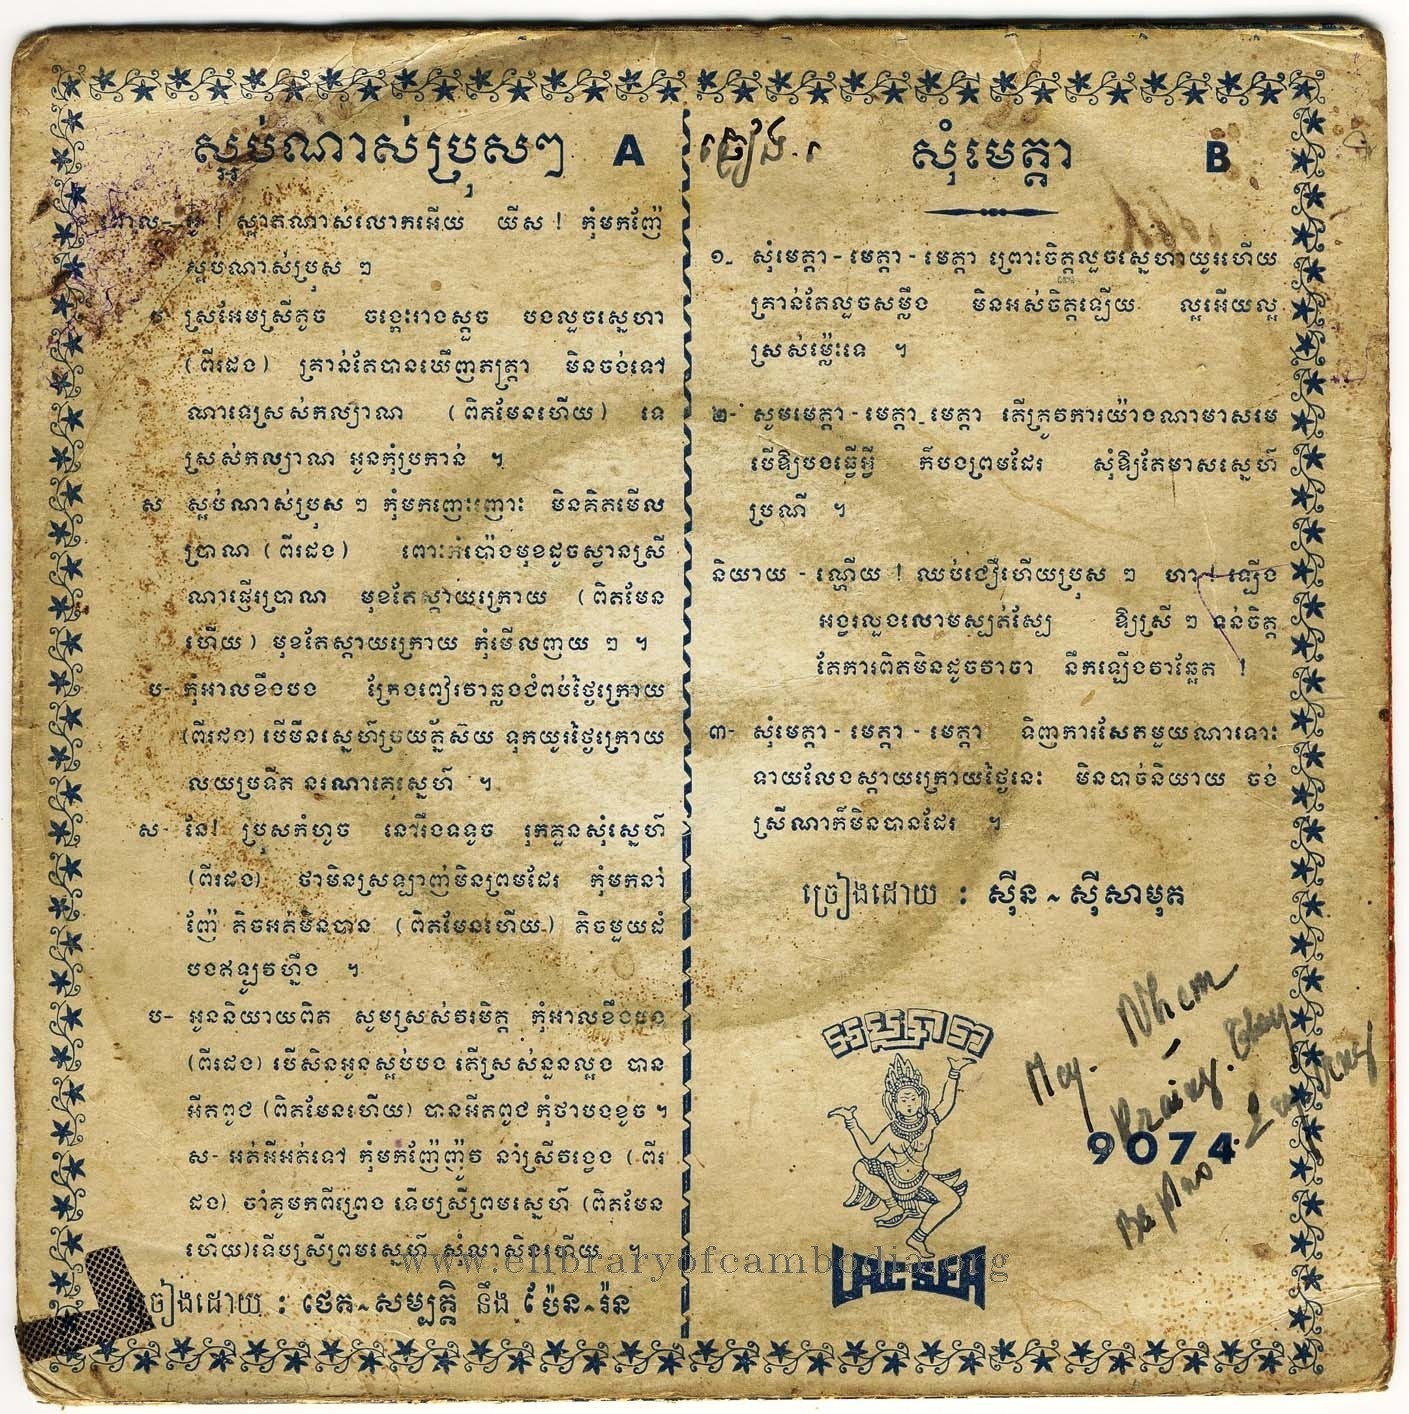 ស្អប់ណាស់ប្រុសៗ A
! ស្អាតណាស់លោកអើយ យីស ! កុំមកញ៉ែ
ស្អប់ណាស់ប្រុស ៗ
ស្រីអែមស្រីតូច ចង្កេះរាងស្តួច បងលួចស្នេហា
(ពីរដង) គ្រាន់តែបានឃើញភក្ត្រា មិនចង់ទៅ
ណាទេស្រស់កល្យាណ (ពិតមែនហើយ) ទេ
ស្រស់កល្យាណ អូនកុំប្រកាន់ ។
ស ស្អប់ណាស់ប្រុស ៗ កុំមកញេះញោះ មិនគិតមើល
ប្រាណ (ពីរដង) ពោះកំប៉ោងមុខដូចស្វានស្រី
ណាផ្ញើរប្រាណ មុខតែស្តាយក្រោយ (ពិតមែន
ហើយ) មុខតែស្តាយក្រោយ កុំមើលញយ ៗ ។
ប- កុំអាលខឹងបង ក្រែងពៀរវាឆ្លងជំពប់ថ្ងៃក្រោយ
(ពីរដង) បើមីនស្នេហ៍ប្រយគ្ន័ស៊យ ទុកយូរថ្ងៃក្រោយ
លយប្រទីត នរណាគេស្នេហ៍ ។
ស- នែ! ប្រុសកំហូច នៅរឹងទទូច រុកគួនសុំស្នេហ៍
(ពីរដង) ថាមិនស្រឡាញ់មិនព្រមដែរ កុំមកនាំ
ញ៉ែ តិចអត់មិនបាន (ពិតមែនហើយ) តិចមួយដំ
បងឥឡូវហ្នឹង ។
ប- អូននិយាយពិត សូមស្រស់វរមិត្ត កុំអាលខឹងបង
(ពីរដង) បើសិនអូនស្អប់បង តើស្រស់នួនល្អង បាន
អីតពូជ (ពិតមែនហើយ) បានអីតពូជ កុំថាបងខូច ។
ស- អត់អីអត់ទៅ កុំមកញ៉ែញ៉ូវ នាំស្រីវង្វេង (ពីរ
ដង) ចាំគូមកពីព្រេង ទើបស្រីព្រមស្នេហ៍ (ពិតមែន
ហើយ) ទើបស្រីព្រមស្នេហ៍ សុំលាសិនហើយ ។
ច្រៀងដោយ : ថេត ~ សម្បត្តិ នឹង ប៉ែន ~ រ៉ន
ច្រៀង
សុំមេត្តា B
១- សុំមេត្តា - មេត្តា - មេត្តា ព្រោះចិត្តលួចស្នេហាយូរហើយ
គ្រាន់តែលួចសម្លឹង មិនអស់ចិត្តឡើយ ល្អអើយល្អ
ស្រស់ម្ល៉េះទេ ។
២- សូមមេត្តា - មេត្តា - មេត្តា តើត្រូវការយ៉ាងណាមាសមេ
បើឱ្យបងធ្វើអ្វី ក៏បងព្រមដែរ សុំឱ្យតែមាសស្នេហ៍
ប្រណី ។
និយាយ - ណ្ហើយ ! ឈប់ជឿហើយប្រុស ៗ ហា ! ឡើង
អង្វរលួងលោមស្បត់ស្បែ ឱ្យស្រី ៗ ទន់ចិត្ត
តែការពិតមិនដូចវាចា នឹកឡើងវាឆ្អែត !
៣- សុំមេត្តា - មេត្តា - មេត្តា ទិញការសែតមួយណាទោះ
ទាយលែងស្តាយក្រោយថ្ងៃនេះ មិនបាច់និយាយ ចង់
ស្រីណាក៏មិនបានដែរ ។
ច្រៀងដោយ : ស៊ីន ~ ស៊ីសាមុត
LAC SEA
9074
May. Nhem
www.elibraryofcambodia.org